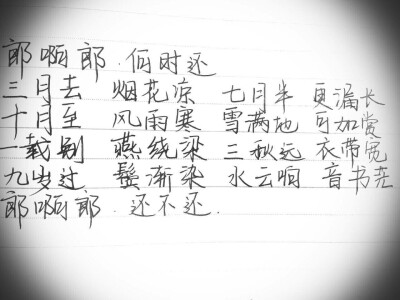 郎啊郎.何时还
三月去 烟花凉 七月半 更漏长
十月至 风雨寒 雪满地 可加赏
一载别 燕绕梁 三秋远 衣带宽
九岁过 鬓渐染 水云间 音书尧
郎啊郎.还不还.